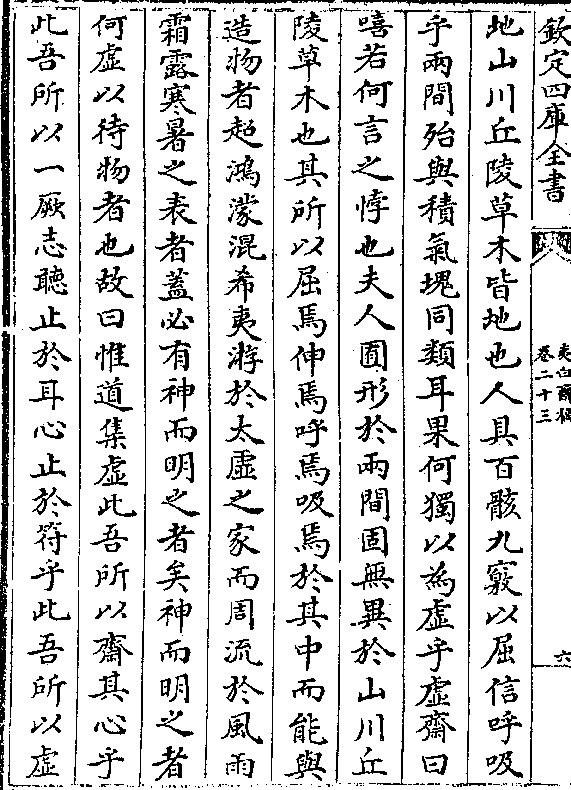 欽定四庫全書
夷白齋稿
卷二十三
六
地山川丘陵草木皆地也人具百骸九竅以屈信呼吸
乎兩間殆與積氣塊同類耳果何獨以為虛乎虛齋曰
嘻若何言之悖也夫人囿形於兩間固無異於山川丘
陵草木也其所以屈焉伸焉呼焉吸焉於其中而能與
造物者超鴻濛混希夷游於太虛之家而周流於風雨
霜露寒暑之表者蓋必有神而明之者矣神而明之者
何虛以待物者也故曰惟道集虛此吾所以齋其心乎
此吾所以一厥志聽止於耳心止於符乎此吾所以虛